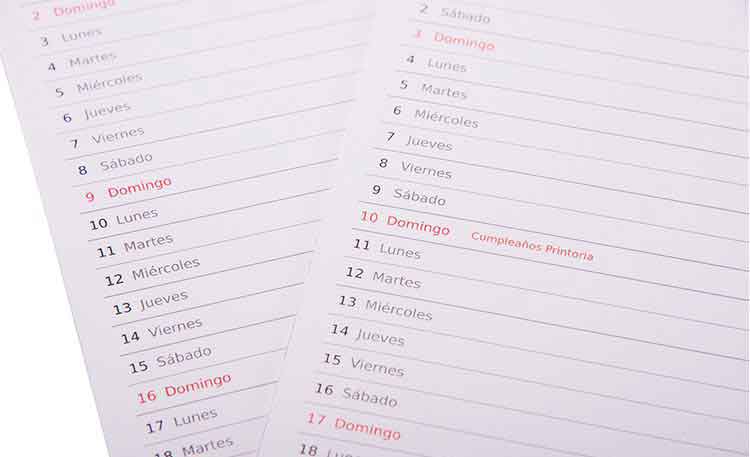 2 Domingo
3 Lunes
4 Martes
5 Miércoles
6 Jueves
7 Viernes
8 Sábado
9 Domingo
10 Lunes
11 Martes
12 Miércoles
13 Jueves
14 Viernes
15 Sábado
16 Domingo
17 Lunes
18 Martes
2 Sábado
3 Domingo
4 Lunes
5 Martes
6 Miércoles
7 Jueves
8 Viernes
9 Sábado
10 Domingo Cumpleaños Printoria
11 Lunes
12 Martes
13 Miércoles
14 Jueves
15 Viernes
16 Sábado
17 Domingo
18 Lunes